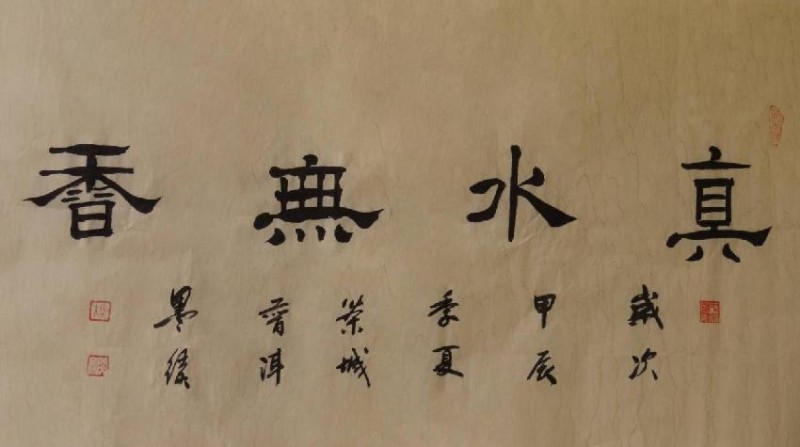 真水無香
歲次
甲辰
季夏
茶城
普洱
墨